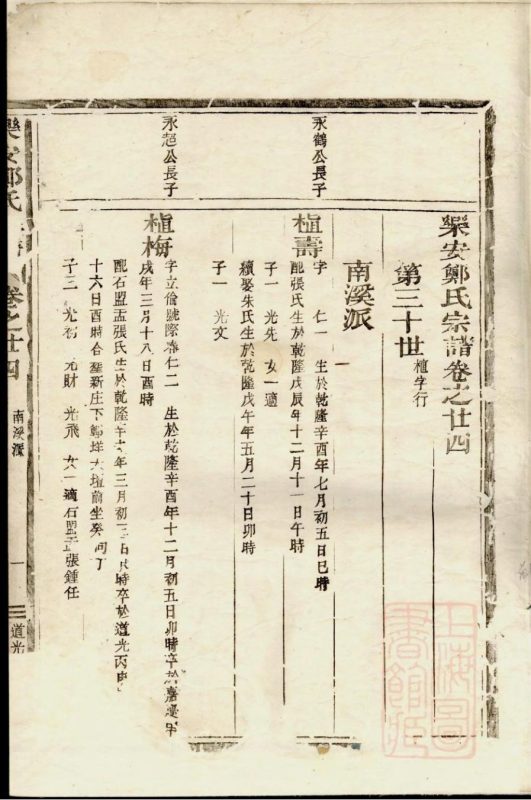 樂安鄭氏宗譜卷之廿四
第三十世 植字行
南溪派
永鶴公長子
植壽 字 仁一 生於乾隆辛酉年七月初五日巳時
配張氏生於乾隆戊辰年十二月十一日午時
子一 光先 女一適
續娶朱氏生於乾隆戊午年五月二十日卯時
子一 光文
永超公長子
植梅 字立倫號際春仁二 生於乾隆辛酉年十二月初五日卯時卒於嘉慶
戌年三月十八日酉時
配石盟盂張氏生於乾隆 年三月初三日 時卒於道光丙申
十六日酉時合塟新庄下 前坐癸向丁
子三 光 光財 光飛 女一適石盟盂張鍾任
樂安鄭氏宗譜 卷之廿四 南溪派 一 道光
上海圖書館藏